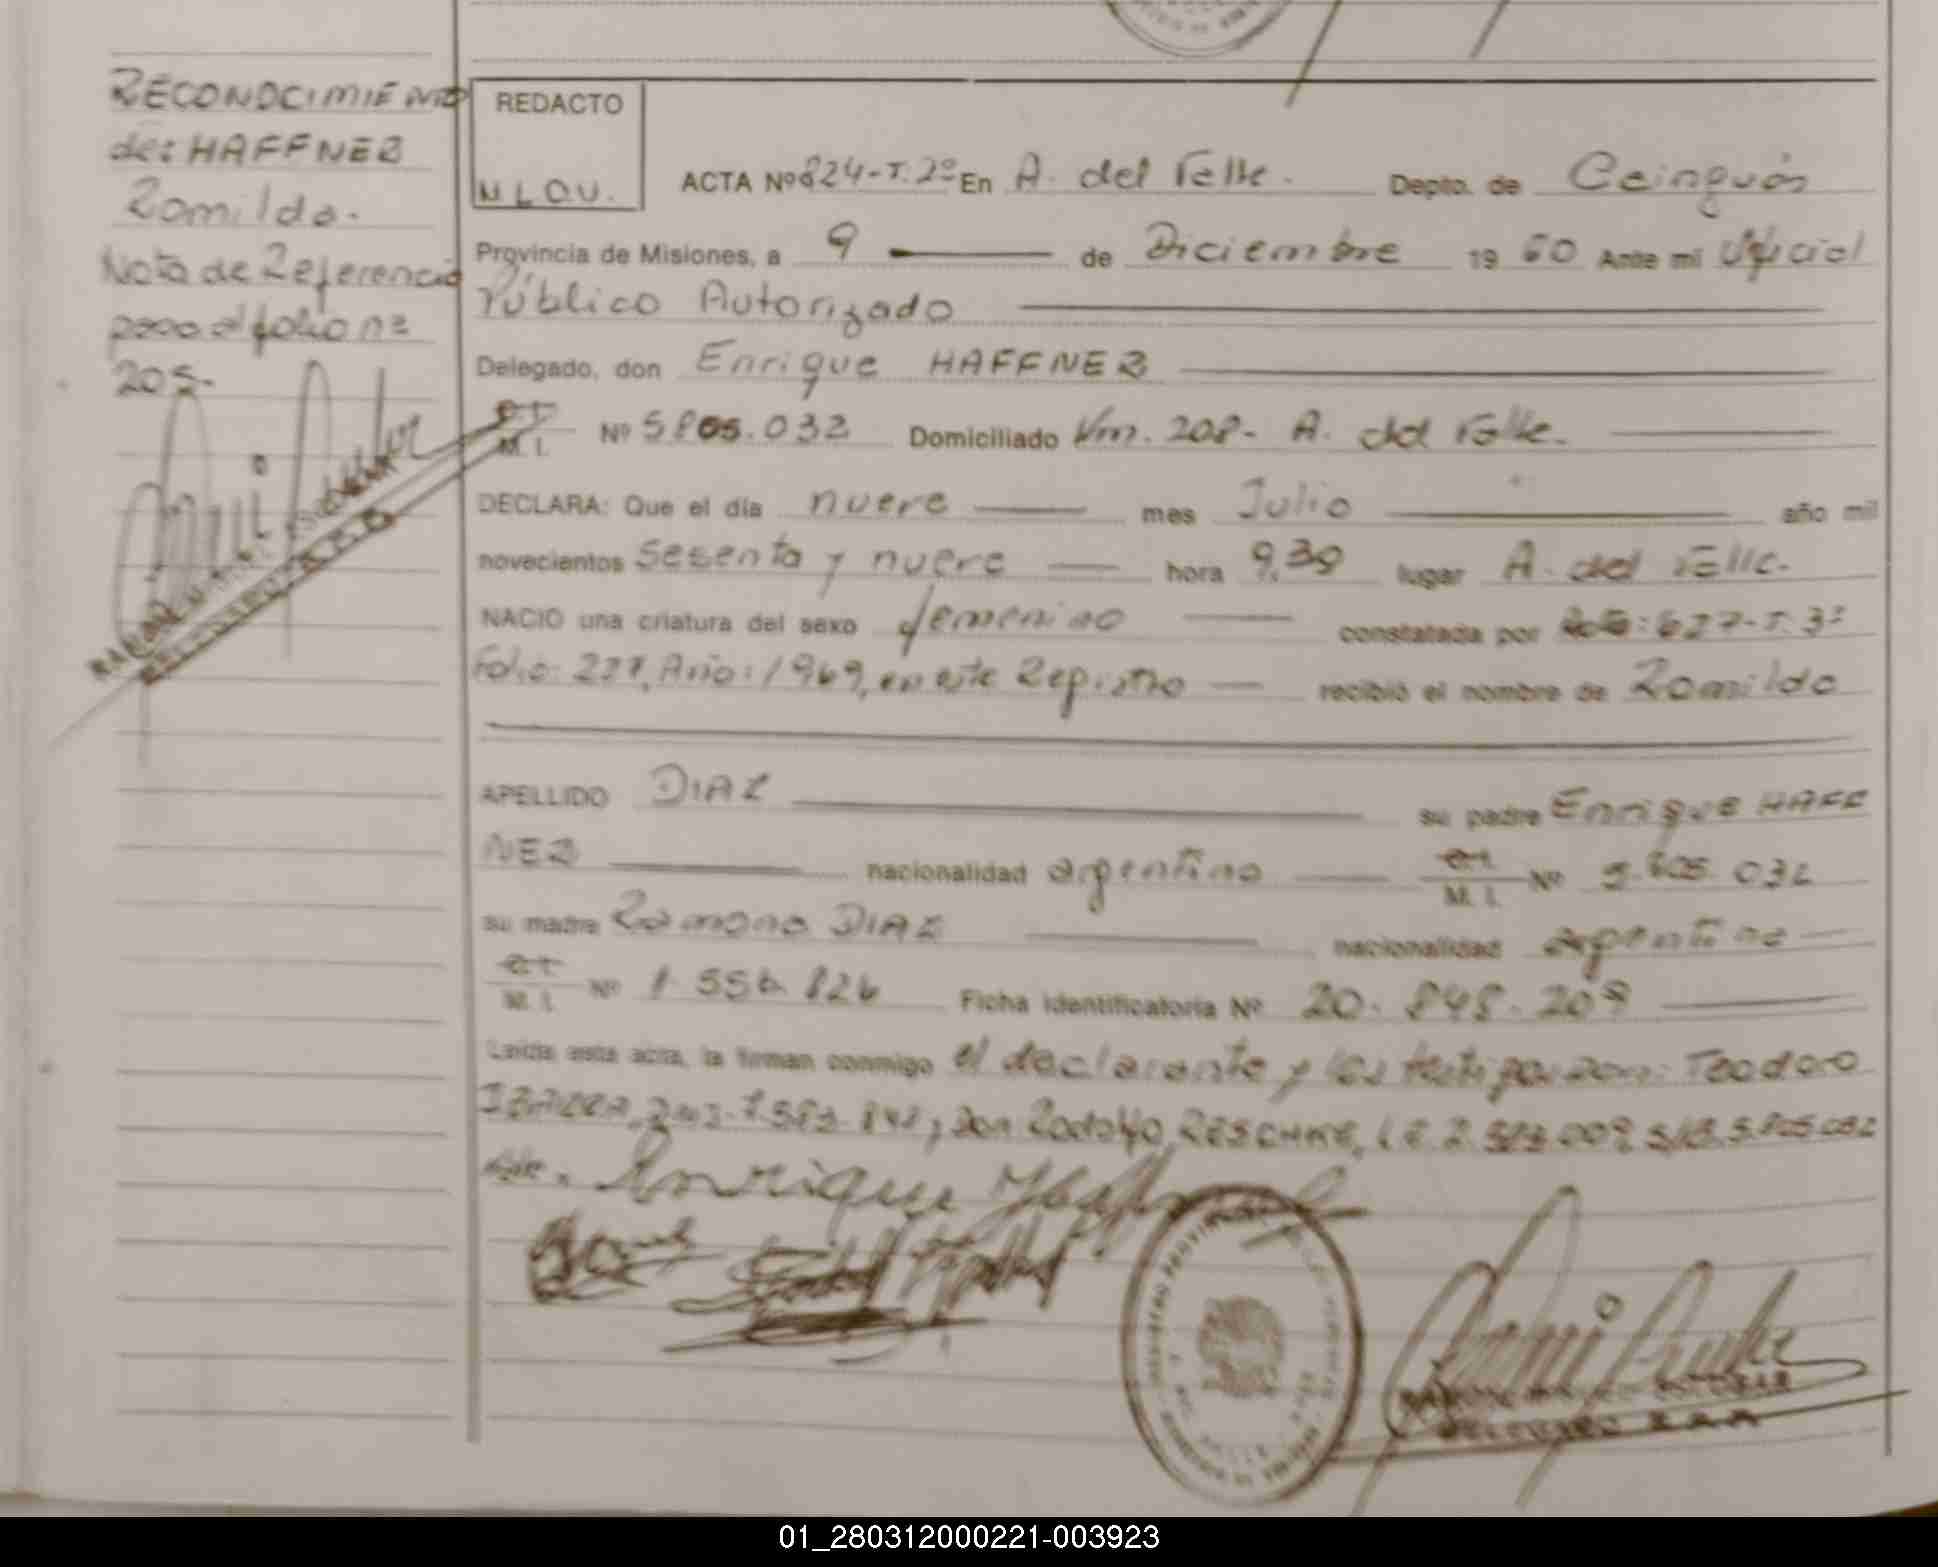 RECONOCIMIENTO
de: HAFFNER
Romilda.
Nota de Referencia
pasa al folio nº
205-
REDACTO
N L O.U.
ACTA Nº 224-T.2º En A. del Valle. Depto. de Cainguás
Provincia de Misiones, a 9 de Diciembre 19 80 Ante mi Oficial
Público Autorizado
Delegado, don Enrique HAFFNER
M. I. Nº 5.805.032 Domiciliado Km. 208- A. del Valle.
DECLARA: Que el día nueve mes Julio año mil
novecientos Sesenta y nueve hora 9,30 lugar A. del Valle.
NACIO una criatura del sexo femenino constatada por Acta: 627-T. 3º
Folio: 227, Año: 1969, en este Registro recibió el nombre de Romilda
APELLIDO DIAZ su padre Enrique HAFF
NER nacionalidad argentina M. I. Nº 5.805.032
su madre Ramona DIAZ nacionalidad argentina
M. I. Nº 1.556.826 Ficha identificatoria Nº 20.848.209
Leída esta acta, la firman conmigo el declarante y los testigos don: Teodoro
don Rodolfo RESCHKE, L.E. 5.805.032
vale.
Enrique Haffner
01_280312000221-003923